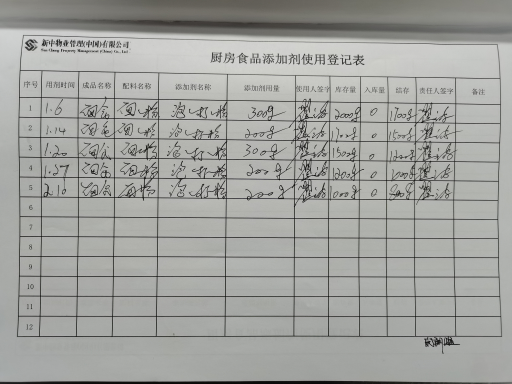 新中物业管理(中国)有限公司
Sun Chung Property Management (China) Co., Ltd.
厨房食品添加剂使用登记表
序号 用剂时间 成品名称 配料名称 添加剂名称 添加剂用量 使用人签字 库存量 入库量 结存 责任人签字 备注
1 1.6 面食 面粉 泡打粉 300g 2000g 0 1700g
2 1.14 面食 面粉 泡打粉 200g 1700g 0 1500g
3 1.20 面食 面粉 泡打粉 300g 1500g 0 1200g
4 1.27 面食 面粉 泡打粉 200g 1200g 0 1000g
5 2.10 面食 面粉 泡打粉 200g 1000g 0 800g
6
7
8
9
10
11
12